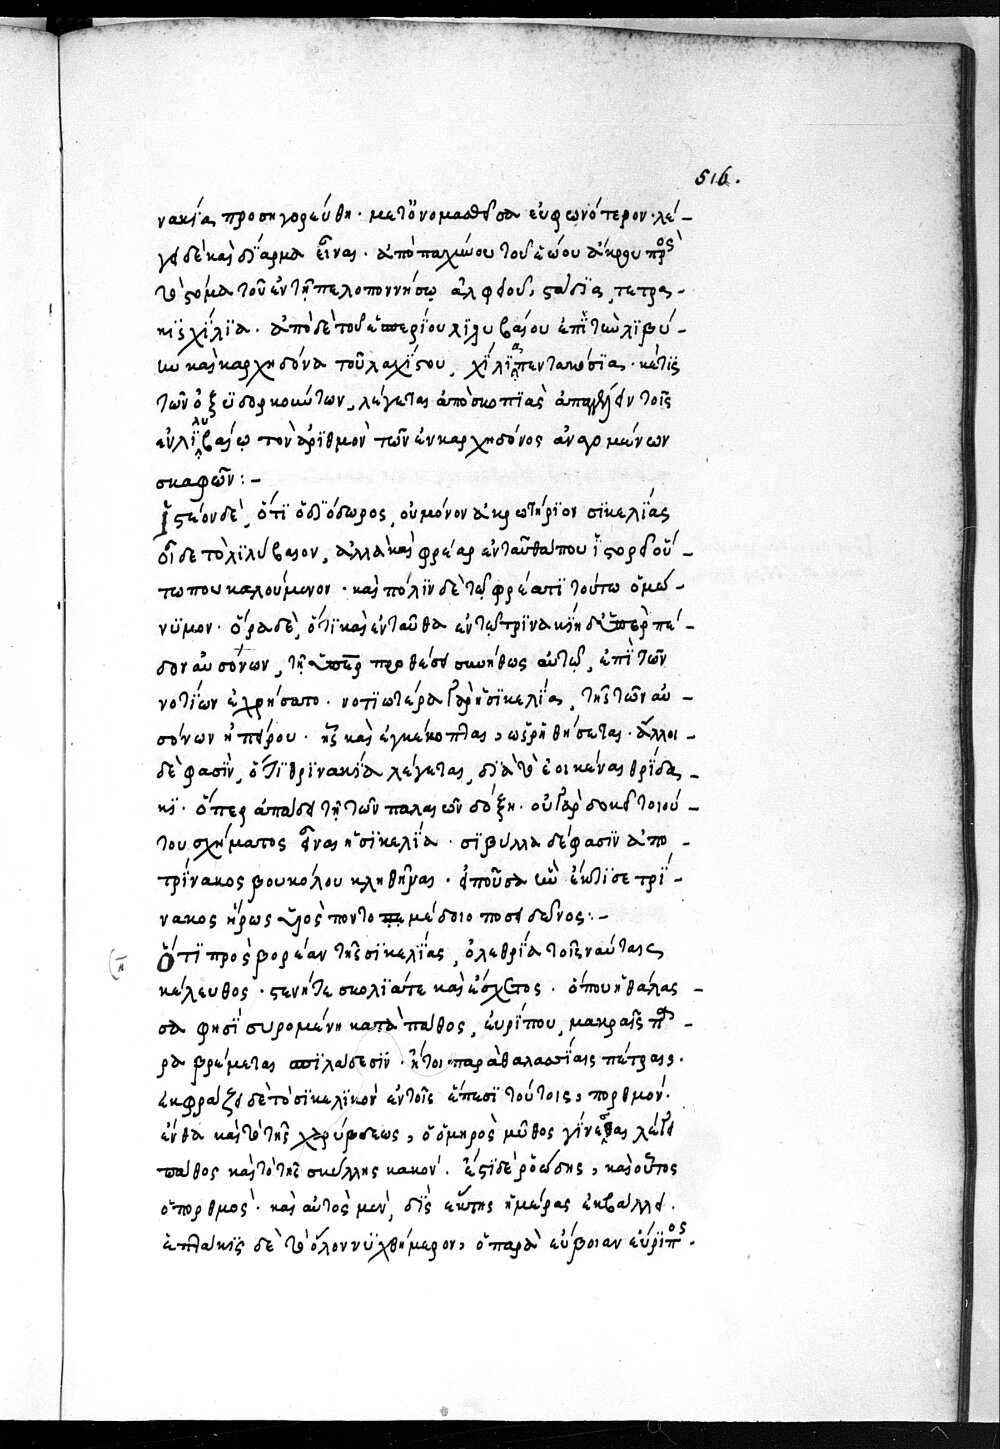 516.
νακία προσηγορεύθη · μετονομασθεῖσα εὐφωνότερον · λέ-
γει δὲ καὶ δίαρμα εἶναι · ἀπὸ παχύνου τοῦ ἑώου ἄκρου πρὸς
τὸ στόμα τοῦ ἐν τῇ πελοποννήσω ἀλφειοῦ, στάδϊα, τετρα-
κϊσχίλϊα · ἀπὸ δὲ τοῦ ἑσπερίου λϊλυβαίου ἐπὶ τὴν λϊβύ-
ην καὶ καρχηδόνα τοῦλαχϊστον, χίλϊα πεντακόσια · καί τϊς
τῶν ὀξϋδορκούντων, λέγεται ἀπὸ σκοπϊᾶς ἀπαγγέλλειν τοῖς
ἐν λϊλυβαίῳ τὸν ἀρϊθμὸν τῶν ἐν καρχηδόνος ἀναγομένων
σκαφῶν : -
Ἰστέον δὲ, ὅτϊ ὁ διόδωρος, οὐ μόνον ἀκρωτήρϊον σϊκελίας
οἶδε τὸ λϊλύβαιον, ἀλλὰ καὶ φρέαρ ἐνταῦθά που ἱστορεῖ οὕ-
τω που καλούμενον · καὶ πόλϊν δὲ τῷ φρέατϊ τούτω ὁμώ-
νϋμον · ὅρα δὲ, ὅτϊ καὶ ἐνταῦθα ἐν τῷ τρϊνακίη δ' ὑπὲρ πέ-
δον αὐσόνων, τῇ ὑπὲρ προθέσει συνήθως αὐτῷ, ἐπὶ τῶν
νοτίων ἐχρήσατο · νοτϊωτέρα γὰρ ἡ σϊκελία, τῆς τῶν αὐ-
σόνων ἠπείρου · ἧς καὶ ἐγκέκοπται, ὡς ῥηθήσεται · ἄλλοι
δὲ φασὶν, ὅτϊ θρϊνακία λέγεται, δϊὰ τὸ ἐοικέναι θρίδα-
κϊ · ὅπερ ἀπάδει τῇ τῶν παλαιῶν δόξῃ · οὐ γὰρ δοκεῖ τοιού-
του σχήματος εἶναι ἡ σϊκελία · σίβυλλα δέ φασϊν ἀπὸ
τρίνακος βουκόλου κληθῆναι · εἰποῦσα ἣν ἔκτϊσε τρί-
νακος ἥρως υἱὸς ποντομέδοιο ποσειδῶνος : -
Ὅτϊ πρὸς βορέαν τῆς σϊκελίας, ὀλεθρία τοῖς ναύταις
κέλευθος · στενή τε σκολϊά τε καὶ ἄσχετος · ὅπου ἡ θάλας-
σα φησὶ συρομένη κατὰ πάθος, εὐρίπου, μακραῖς πε-
ρϊ βρέμεται σπϊλάδεσϊν · ἤτοι παραθαλασσίαις πέτραις ·
ἐκφράζει δὲ τὸ σϊκελϊκὸν ἐν τοῖς ἔπεσϊ τούτοις, πορθμὸν ·
ἔνθα καὶ τὸ τῆς χαρύβδεως, ὁ ὁμηρὸς μῦθος γίνεσθαι λέγει
πάθος καὶ τὸ τῆς σκύλλης κακὸν · ἔστϊ δὲ ῥοώδης, καὶ οὗτος
ὁ πορθμὸς · καὶ αὐτὸς μὲν, δὶς ἑκάστης ἡμέρας ἐκβάλλει ·
ἑπτάκϊς δὲ τὸ ὅλον νϋχθήμερον, ὁ παρὰ εὔβοιαν εὔρϊπος ·